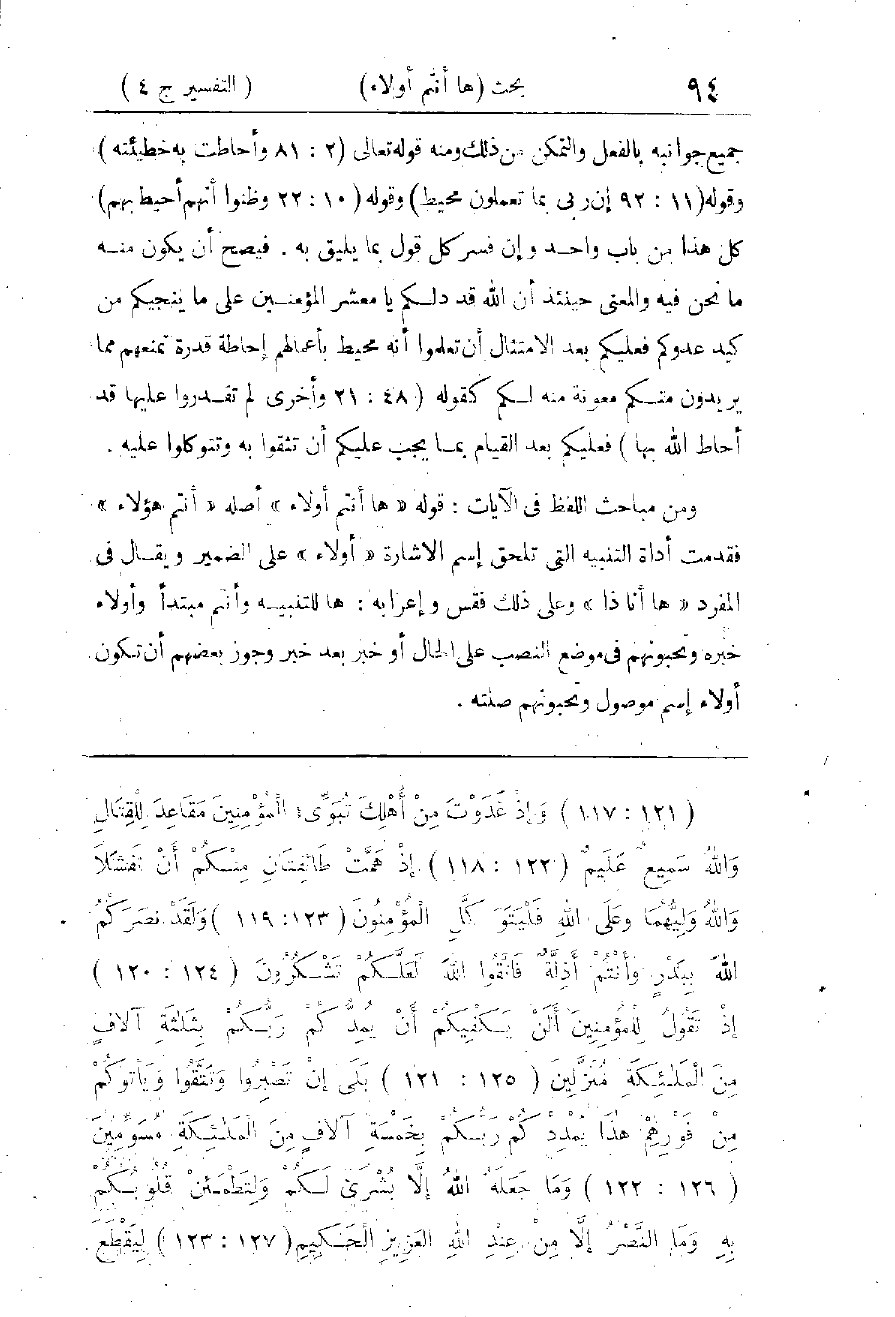 ٩٤ بحث (ها أنتم أولاء) ( التفسير ج ٤ )
جميع جوانبه بالفعل والتمكن من ذلك ومنه قوله تعالى (٢ : ٨١ وأحاطت به خطيئته )
وقوله (١١ : ٩٢ إن ربى بما تعملون محيط) وقوله (١٠ : ٢٢ وظنوا أنهم أحيط بهم)
كل هذا من باب واحد وإن فسر كل قول بما يليق به . فيصح أن يكون منه
ما نحن فيه والمعنى حينئذ أن الله قد دلكم يا معشر المؤمنين على ما ينجيكم من
كيد عدوكم فعليكم بعد الامتثال أن تعلموا أنه محيط بأعمالهم إحاطة قدرة تمنعهم مما
يريدون منكم معونة منه لكم كقوله ( ٤٨ : ٢١ وأخرى لم تقدروا عليها قد
أحاط الله بها ) فعليكم بعد القيام بما يجب عليكم أن تثقوا به وتتوكلوا عليه .
ومن مباحث اللفظ فى الآيات : قوله « ها أنتم أولاء » أصله « أنتم هؤلاء »
فقدمت أداة التنبيه التى تلحق إسم الاشارة « أولاء » على الضمير ويقال فى
المفرد « ها أنا ذا » وعلى ذلك فقس وإعرابه : ها للتنبيه وأنتم مبتدأ وأولاء
خبره وتحبونهم فى موضع النصب على الحال أو خبر بعد خبر وجوز بعضهم أن تكون
أولاء إسم موصول وتحبونهم صلته .
( ١٢١ : ١١٧ ) وَإِذْ غَدَوْتَ مِنْ أَهْلِكَ تُبَوِّئُ الْمُؤْمِنِينَ مَقَاعِدَ لِلْقِتَالِ
وَاللهُ سَمِيعٌ عَلِيمٌ ( ١٢٢ : ١١٨ ) إِذْ هَمَّتْ طَائِفَتَانِ مِنْكُمْ أَنْ تَفْشَلَا
وَاللهُ وَلِيُّهُمَا وَعَلَى اللهِ فَلْيَتَوَكَّلِ الْمُؤْمِنُونَ (١٢٣ : ١١٩ ) وَلَقَدْ نَصَرَكُمُ
اللهُ بِبَدْرٍ وَأَنْتُمْ أَذِلَّةٌ فَاتَّقُوا اللهَ لَعَلَّكُمْ تَشْكُرُونَ ( ١٢٤ : ١٢٠ )
إِذْ تَقُولُ لِلْمُؤْمِنِينَ أَلَنْ يَكْفِيَكُمْ أَنْ يُمِدَّكُمْ رَبُّكُمْ بِثَلٰثَةِ آلَافٍ
مِنَ الْمَلٰئِكَةِ مُنْزَلِينَ ( ١٢٥ : ١٢١ ) بَلَى إِنْ تَصْبِرُوا وَتَتَّقُوا وَيَأْتُوكُمْ
مِنْ فَوْرِهِمْ هٰذَا يُمْدِدْكُمْ رَبُّكُمْ بِخَمْسَةِ آلَافٍ مِنَ الْمَلٰئِكَةِ مُسَوِّمِينَ
( ١٢٦ : ١٢٢ ) وَمَا جَعَلَهُ اللهُ إِلَّا بُشْرَىٰ لَكُمْ وَلِتَطْمَئِنَّ قُلُوبُكُمْ
بِهِ وَمَا النَّصْرُ إِلَّا مِنْ عِنْدِ اللهِ الْعَزِيزِ الْحَكِيمِ (١٢٧ : ١٢٣ ) لِيَقْطَعَ